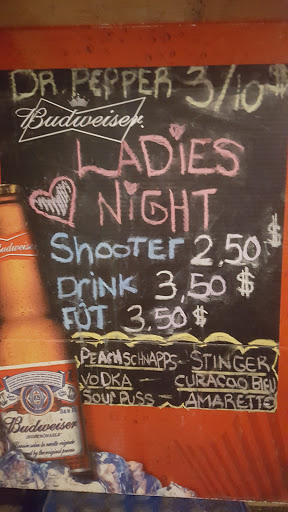 DR. PEPPER 3/10$
Budweiser
LADIES
NIGHT
Shooter 2,50$
DRiNK 3,50$
FÛT 3,50$
PEACH SCHNAPPS - STiNGER
VODKA - CURACAO BlEU
SOUR PUSS - AMARETTO
Budweiser
Budweiser